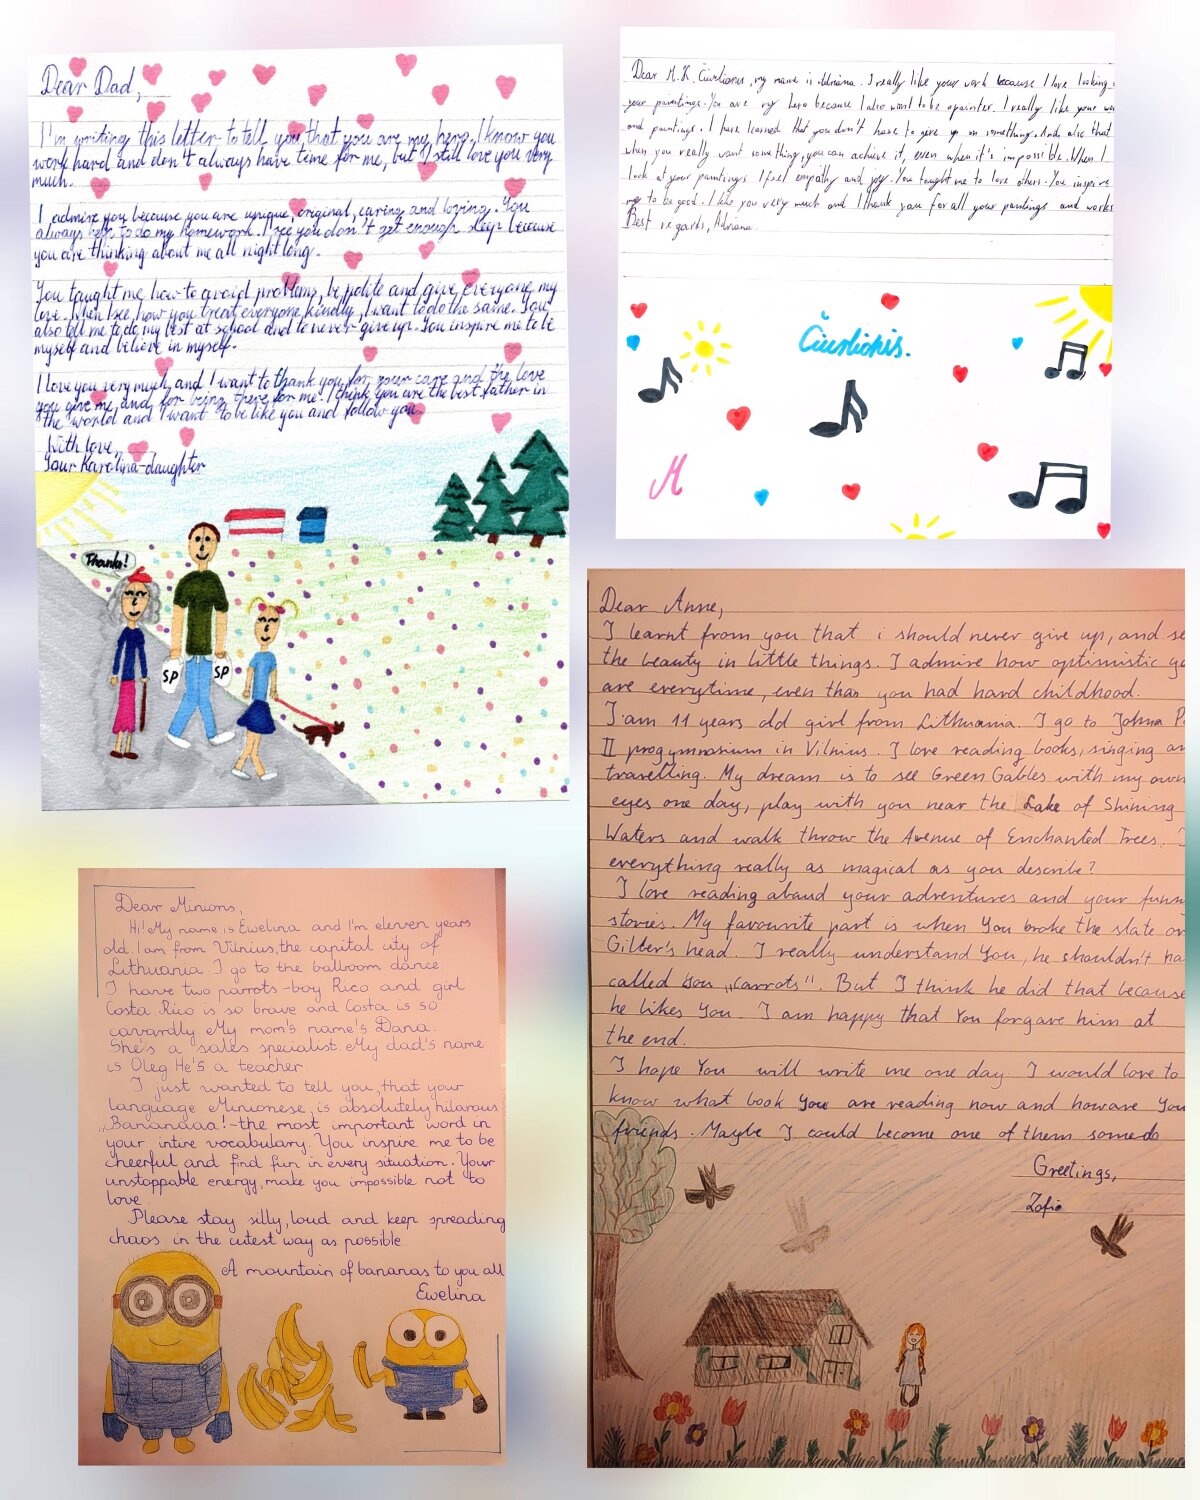 Dear Dad,
I'm writing this letter to tell you, that you are my hero. I know you
work hard and don't always have time for me, but I still love you very
much.
I admire you because you are unique, original, caring and loving. You
always help to do my homework. I see you don't get enough sleep because
you are thinking about me all night long.
You taught me how to avoid problems, be polite and give everyone my
love. When I see, how you treat everyone kindly, I want to do the same. You
also tell me to do my best at school and to never give up. You inspire me to be
myself and believe in myself.
I love you very much, and I want to thank you for your care and the love
you give me, and for being there for me. I think you are the best father in
the world and I want to be like you and follow you.
With love,
Your Karolina-daughter
Thanks!
SP
SP
Dear M.K. Čiurlionis, my name is Adriana. I really like your work because I love looking
your paintings. You are my hero because I also want to be a painter. I really like your wo
and paintings. I have learned that you don't have to give up on something. And also that
when you really want something, you can achieve it, even when it's impossible. When I
look at your paintings I feel empathy and joy. You taught me to love others. You inspire
me to be good. I like you very much and I thank you for all your paintings and works
Best regards, Adriana.
Čiurlionis.
Dear Anne,
I learnt from you that i should never give up, and se
the beauty in little things. I admire how optimistic yo
are everytime, even than you had hard childhood.
I am 11 years old girl from Lithuania. I go to Johna P
II progymnasium in Vilnius. I love reading books, singing an
travelling. My dream is to see Green Gables with my own
eyes one day, play with you near the Lake of Shining
Waters and walk throw the Avenue of Enchanted Trees. I
everything really as magical as you describe?
I love reading abaud your adventures and your funn
stories. My favourite part is when You broke the slate on
Gilber's head. I really understand You, he shouldn't ha
called You „carrots". But I think he did that because
he likes You. I am happy that You forgave him at
the end.
I hope You will write me one day. I would love to
know what book You are reading now and howare You
friends. Maybe I could become one of them someda
Greetings,
Zofia
Dear Minions,
Hi! My name is Ewelina and I'm eleven years
old. I am from Vilnius, the capital city of
Lithuania. I go to the ballroom dance.
I have two parrots-boy Rico and girl
Costa. Rico is so brave and Costa is so
cavardly. My mom's name's Dana.
She's a sales specialist. My dad's name
is Oleg. He's a teacher.
I just wanted to tell you, that your
language Minionese, is absolutely hilarous
„Bananaaa!-the most important word in
your intire vocabulary. You inspire me to be
cheerful and find fun in every situation. Your
unstoppable energy, make you impossible not to
love.
Please stay silly, loud and keep spreading
chaos in the cutest way as possible.
A mountain of bananas to you all
Ewelina